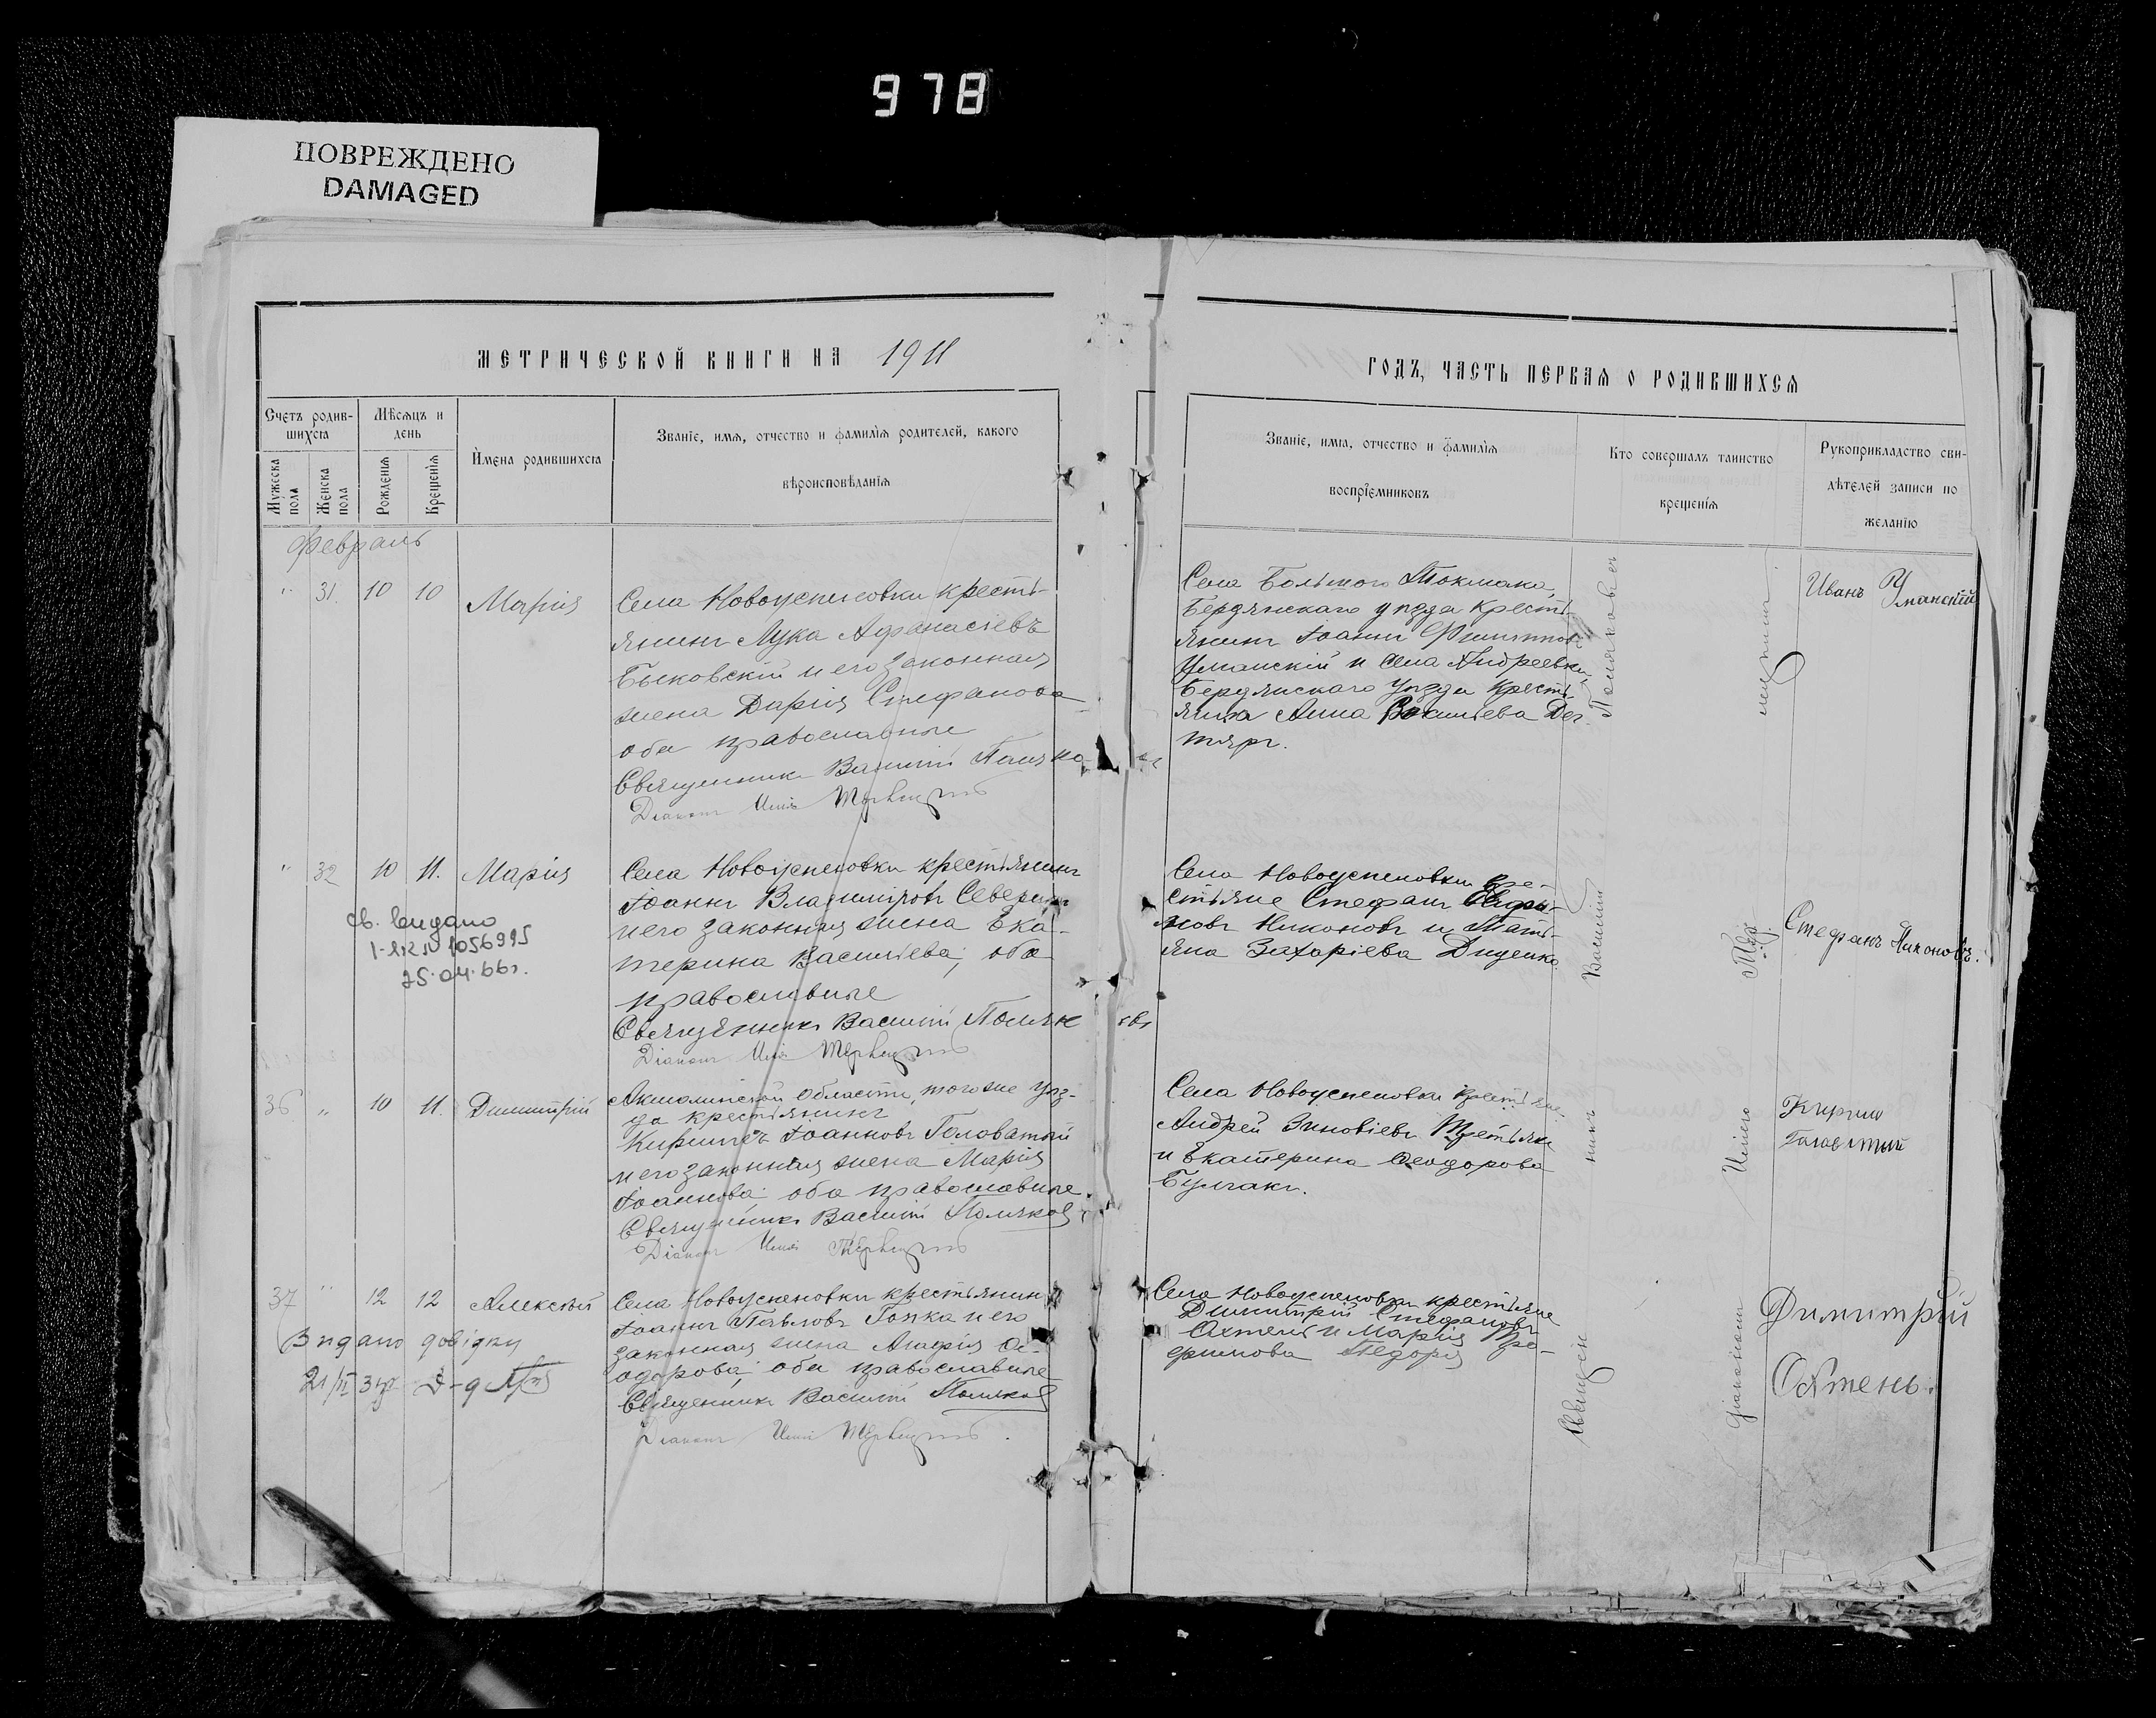 978
ПОВРЕЖДЕНО
DAMAGED
МЕТРИЧЕСКОЙ КНИГИ НА 1911
ГОДЪ, ЧАСТЬ ПЕРВАЯ О РОДИВШИХСЯ
Счетъ родив-
шихся
Мѣсяцъ и
день
Мужеска
пола
Женска
пола
Рожденія
Крещенія
Имена родившихся
Званіе, имя, отчество и фамилія родителей, какого
вѣроисповѣданія
Званіе, имя, отчество и фамилія
воспріемниковъ
Кто совершалъ таинство
крещенія
Рукоприкладство сви-
дѣтелей записи по
желанію
Февраль
" 31. 10 10 Марія
Села Новоуспеновки кресть-
янинъ Лука Афанасіевъ
Быковскій и его законная
жена Дарія Стефанова
оба православные
Священникъ Василій Поляко-
въ
Діаконъ Илія
Села Большого Токмака,
Бердянскаго уѣзда кресть-
янинъ Іоаннъ
Уманскій и села Андреевки,
Бердянскаго уѣзда кресть-
янка Анна Васильева Дег-
тярь.
Иванъ Уманскій
" 32 10 11. Марія
св. видано
1-ЯК № 1056995
25.04.66г.
Села Новоуспеновки крестьянинъ
Іоаннъ Владиміровъ Северинъ
и его законная жена Ека-
терина Васильева, оба
православные
Священникъ Василій Поляк
овъ
Діаконъ Илія
Села Новоуспеновки кре-
стьяне Стефанъ
Никоновъ и Тать-
яна Захаріева Диденко
Стефанъ Никоновъ.
36 " 10 11. Димитрій
Акмолинской области, того же уѣз-
да крестьянинъ
Кириллъ Іоанновъ Головатый
и его законная жена Марія
Іоаннова оба православные.
Священникъ Василій Поляковъ
Діаконъ Илія
Села Новоуспеновки крестьяне
Андрей Зиновіевъ Третьякъ
и Екатерина Ѳеодорова
Булгакъ.
Кирило
Головатый
37 " 12 12 Алексѣй
Видано довідку
Села Новоуспеновки крестьянинъ
Іоаннъ Павловъ Гопка и его
законная жена Агафія Ѳе-
одорова, оба православные
Священникъ Василій Поляковъ
Діаконъ Илія
Села Новоуспеновки крестьяне
Димитрій Стефановъ
Охтень и Марія Тро-
фимова
Димитрій
Охтень.
Священ
никъ
Василій
Поляковъ съ
діакономъ
Иліею